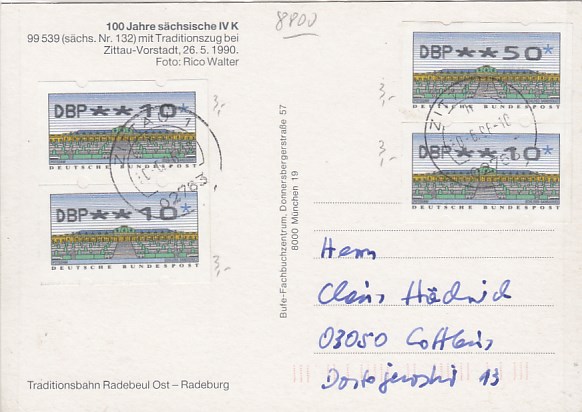 100 Jahre sächsische IV K
99 539 (sächs. Nr. 132) mit Traditionszug bei
Zittau-Vorstadt, 26. 5. 1990.
Foto: Rico Walter
8800
DBP **50*
DEUTSCHE BUNDESPOST
DBP **10*
DEUTSCHE BUNDESPOST
3,-
3,-
DBP **10*
DEUTSCHE BUNDESPOST
DBP **10*
DEUTSCHE BUNDESPOST
3,-
3,-
ZITTAU 1
02763
Bufe-Fachbuchzentrum, Donnersbergerstraße 57
8000 München 19
Herrn
Claus
03050 Cottbus
13
Traditionsbahn Radebeul Ost – Radeburg